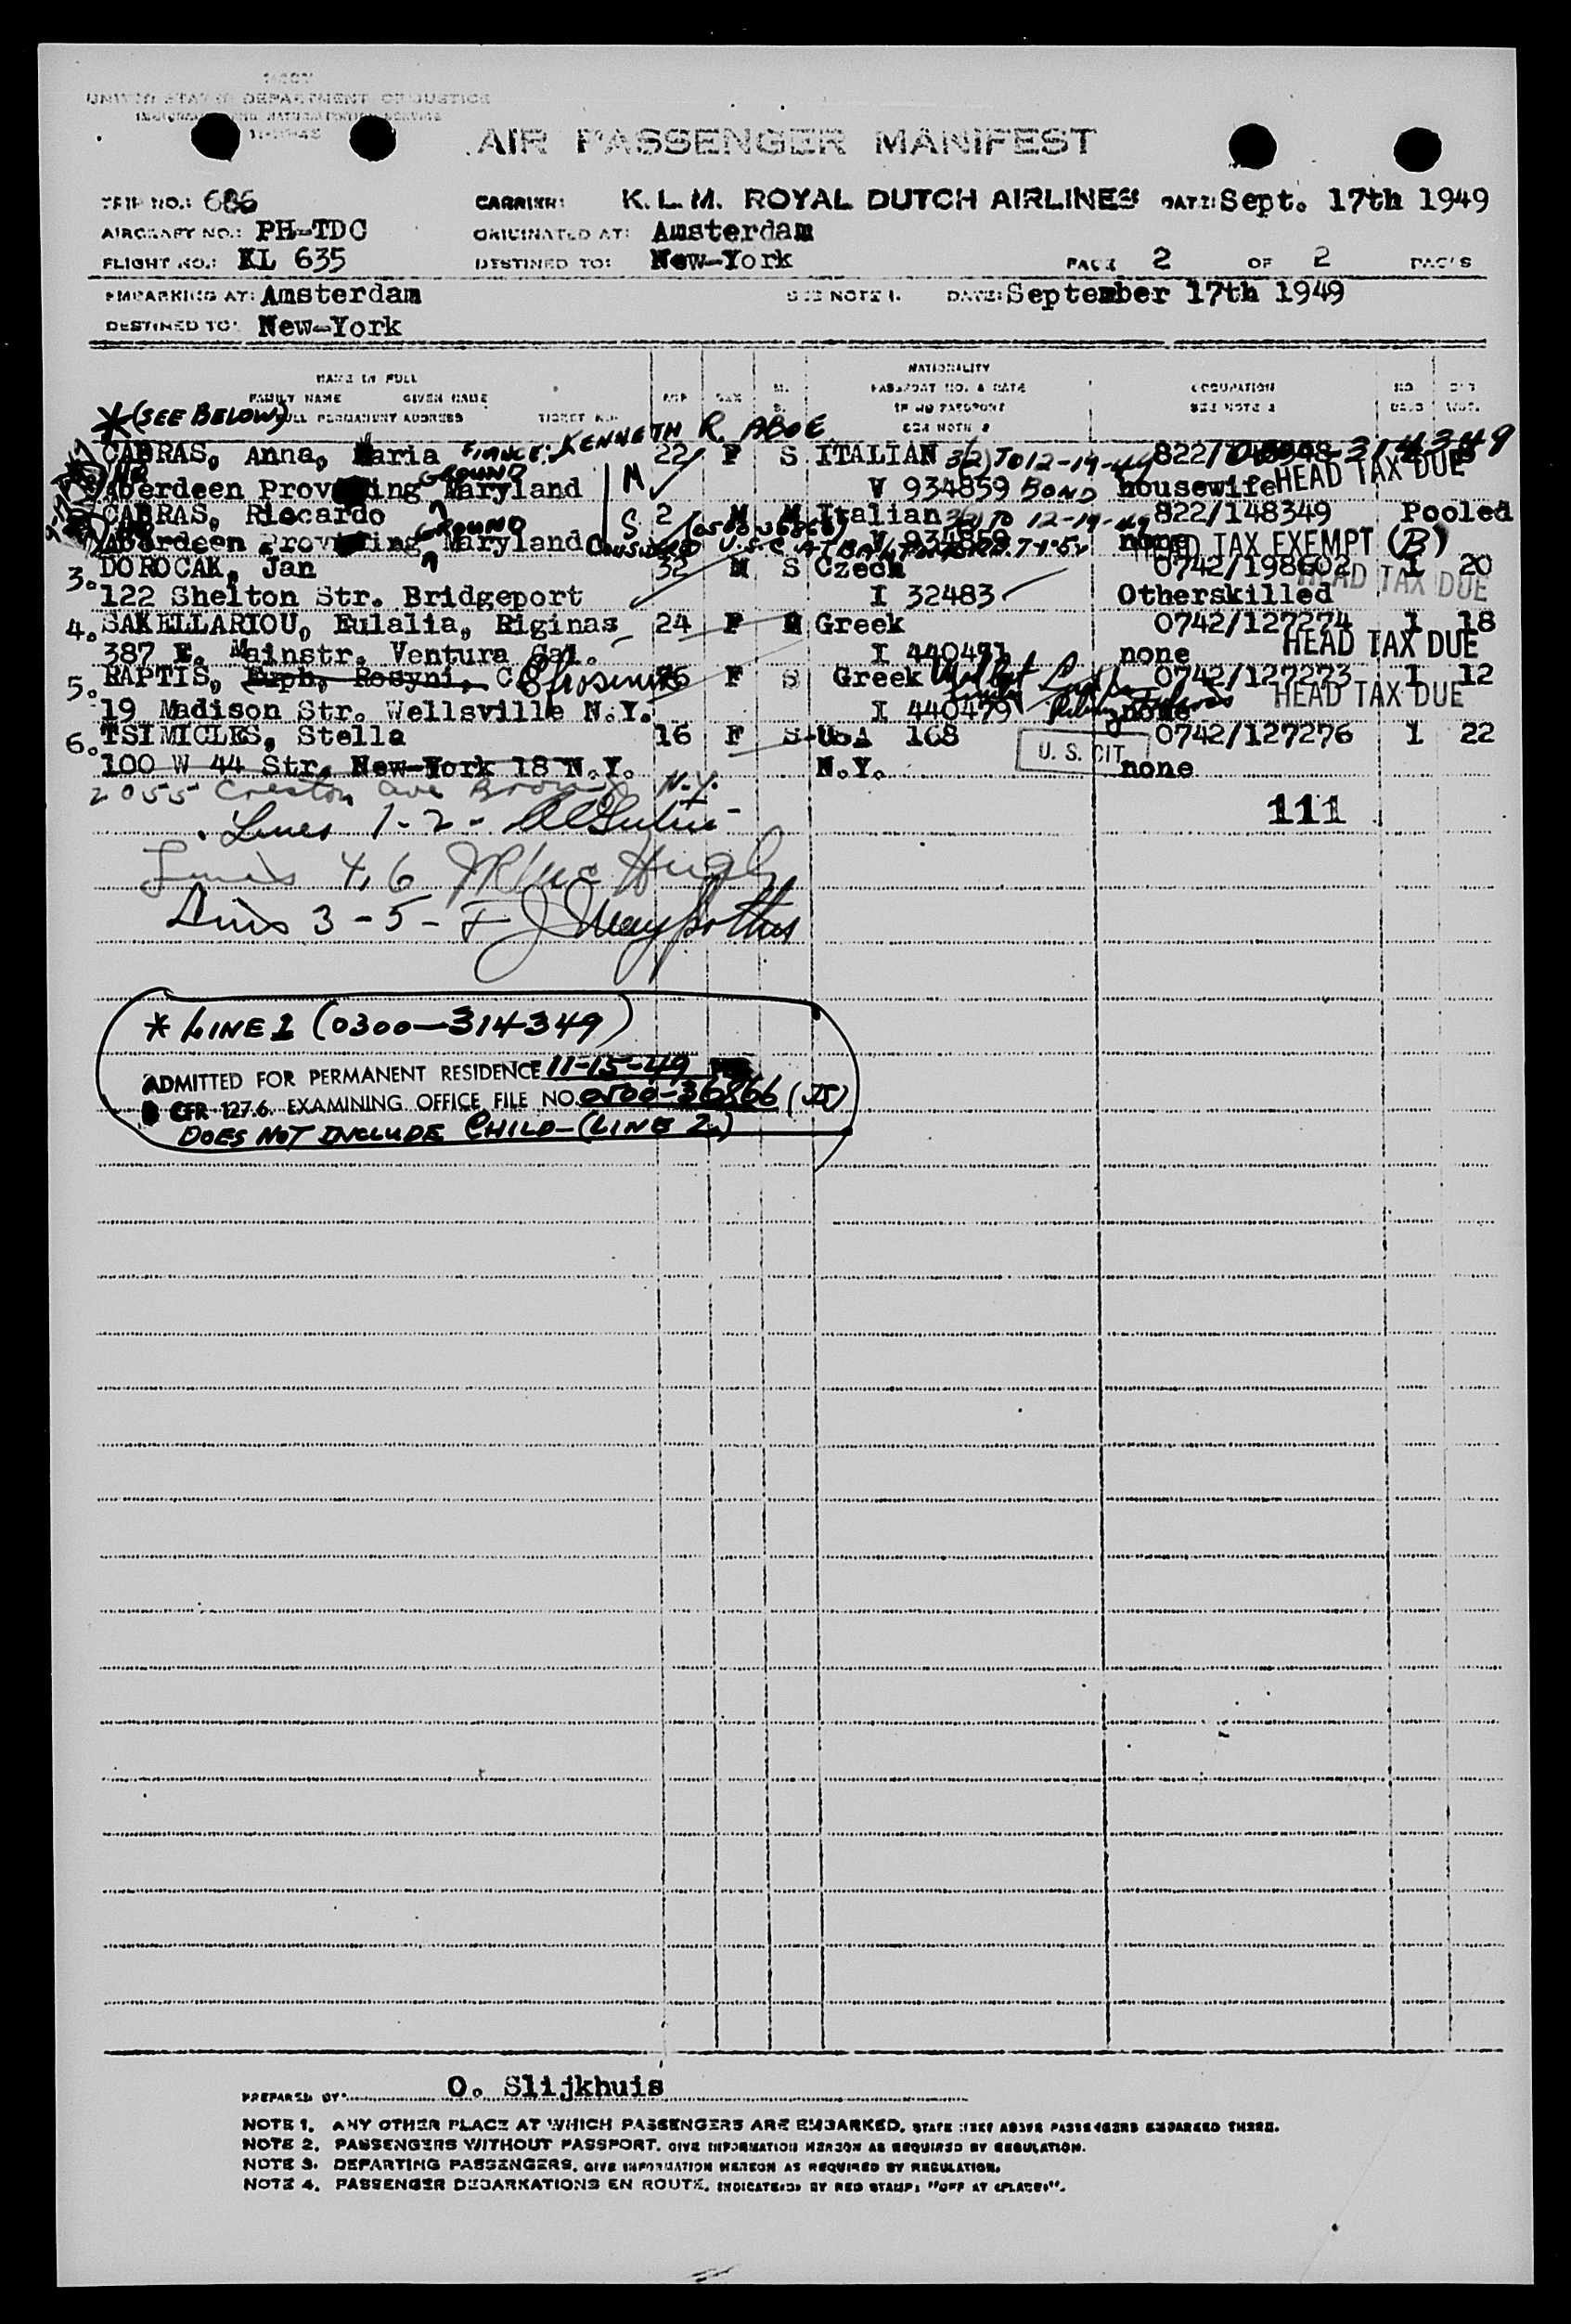 UNITED STATES DEPARTMENT OF JUSTICE
IMMIGRATION AND NATURALIZATION SERVICE
AIR PASSENGER MANIFEST
TRIP NO.: 686 CARRIER: K. L. M. ROYAL DUTCH AIRLINES DATE: Sept. 17th 1949
AIRCRAFT NO.: PH-TDC ORIGINATED AT: Amsterdam
FLIGHT NO.: KL 635 DESTINED TO: New-York PAGE 2 OF 2 PAGES
EMBARKING AT: Amsterdam SEE NOTE 1. DATE: September 17th 1949
DESTINED TO: New-York
NAME IN FULL NATIONALITY
FAMILY NAME GIVEN NAME AGE SEX M. S. PASSPORT NO. & DATE OCCUPATION NO.
*(SEE BELOW) FULL PERMANENT ADDRESS TICKET NO. IF NO PASSPORT SEE NOTE 2 SEE NOTE 2 WGT.
CABRAS, Anna, Maria FIANCE: KENNETH R. ABOE 22 F S ITALIAN 3(2) TO 12-19-49 822/ 314349
Aberdeen Proving GROUND Maryland M V 934859 BOND housewife HEAD TAX DUE
CABRAS, Riccardo S 2 M M Italian 3(2) TO 12-19-49 822/148349 Pooled
Aberdeen Proving GROUND Maryland V 934859 none HEAD TAX EXEMPT (B)
3. DOROCAK, Jan 32 M S Czech 0742/198602 1 20
122 Shelton Str. Bridgeport I 32483 Otherskilled HEAD TAX DUE
4. SAKELLARIOU, Eulalia, Riginas 24 F Greek 0742/127274 1 18
387 E. Mainstr. Ventura Cal. I 440491 none HEAD TAX DUE
5. RAPTIS, Euph, Rosyni, C. Efrosini 26 F S Greek 0742/127273 1 12
19 Madison Str. Wellsville N.Y. I 440479 none HEAD TAX DUE
6. TSIMICLES, Stella 16 F S USA 168 U. S. CIT. 0742/127276 1 22
100 W 44 Str. New-York 18 N.Y. N.Y. none
2055 Creston ave Bronx N.Y.
111
Lines 1-2-
Lines 4,6
Lines 3-5-
* LINE 1 (0300-314349)
ADMITTED FOR PERMANENT RESIDENCE 11-15-49
8 CFR 127.6. EXAMINING OFFICE FILE NO. 0500-36866
DOES NOT INCLUDE CHILD-(LINE 2)
PREPARED BY: O. Slijkhuis
NOTE 1. ANY OTHER PLACE AT WHICH PASSENGERS ARE EMBARKED, STATE HERE ABOVE PASSENGERS EMBARKED THERE.
NOTE 2. PASSENGERS WITHOUT PASSPORT, GIVE INFORMATION HEREON AS REQUIRED BY REGULATION.
NOTE 3. DEPARTING PASSENGERS, GIVE INFORMATION HEREON AS REQUIRED BY REGULATION.
NOTE 4. PASSENGER DEBARKATIONS EN ROUTE, INDICATE(D) BY RED STAMP: "OFF AT (PLACE)".